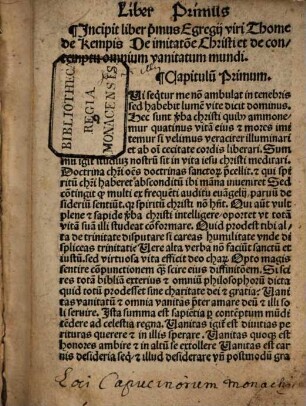 Liber Primus
Incipit liber pꝛimus Egregij viri Thome
de Kempis De imitatiõe Christi et de con-
temptu omnium vanitatum mundi.
Capitulũ Primum.
BIBLIOTHECA
REGIA
MONACENSIS
Ui seqtur me nõ ambulat in tenebris
sed habebit lumẽ vite dicit dominus.
Hec sunt ꝟba christi quibꝰ ammone-
mur quatinus vitã eius ⁊ mores imi
temur si velimus veraciter illuminari
et ab oĩ cecitate cordis liberari. Sum
mũ igit studiuz nostrũ sit in vita iesu christi meditari.
Doctrina chꝛi oẽs doctrinas sanctoꝝ p̃cellit. ⁊ qui spi
ritũ chꝛi haberet absconditũ ibi mãna inueniret Sed
cõtingit ꝙ multi ex frequẽti auditu euãgelij paruũ de
sideriũ sentiũt. qꝛ spiritũ christi nõ hñt. Qui aũt vult
plene ⁊ sapide ꝟba christi intelligere oportet vt totã
vitã suã illi studeat cõformare. Quid prodest tibi al
ta de trinitate disputare si careas humilitate vnde di
spliceas trinitati: Uere alta verba nõ faciũt sanctũ et
iustũ. sed virtuosa vita efficit deo charũ. Opto magis
sentire cõpunctionem ꝙ̃ scire eius diffinitõem. Si sci
res totã bibliã exterius ⁊ omniũ philosophoꝝ dicta
quid totũ prodesset sine charitate dei ⁊ gratia: Uani
tas vanitatũ ⁊ omnia vanitas p̃ter amare deũ ⁊ illi so
li seruire. Ista summa est sapiẽtia ꝑ contẽptum mũdi
tẽdere ad celestia regna. Uanitas igit est diuitias pe
rituras querere ⁊ in illis sperare. Uanitas quoqꝫ est
honores ambire ⁊ in altũ se extollere Uanitas est car
nis desideria seqͥ ⁊ illud desiderare vñ postmodũ gra
Loci Capucinorum Monachij